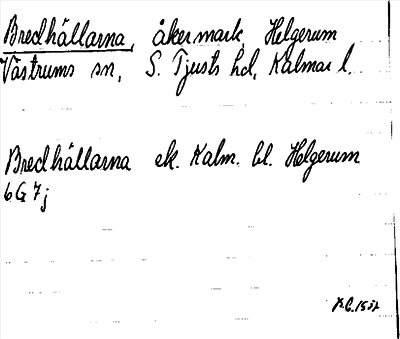 Bredhällarna, åkermark, Helgerum
Västrums sn, S. Tjusts hd, Kalmar l.
Bredhällarna ek. Kalm. bl. Helgerum
6G 7j